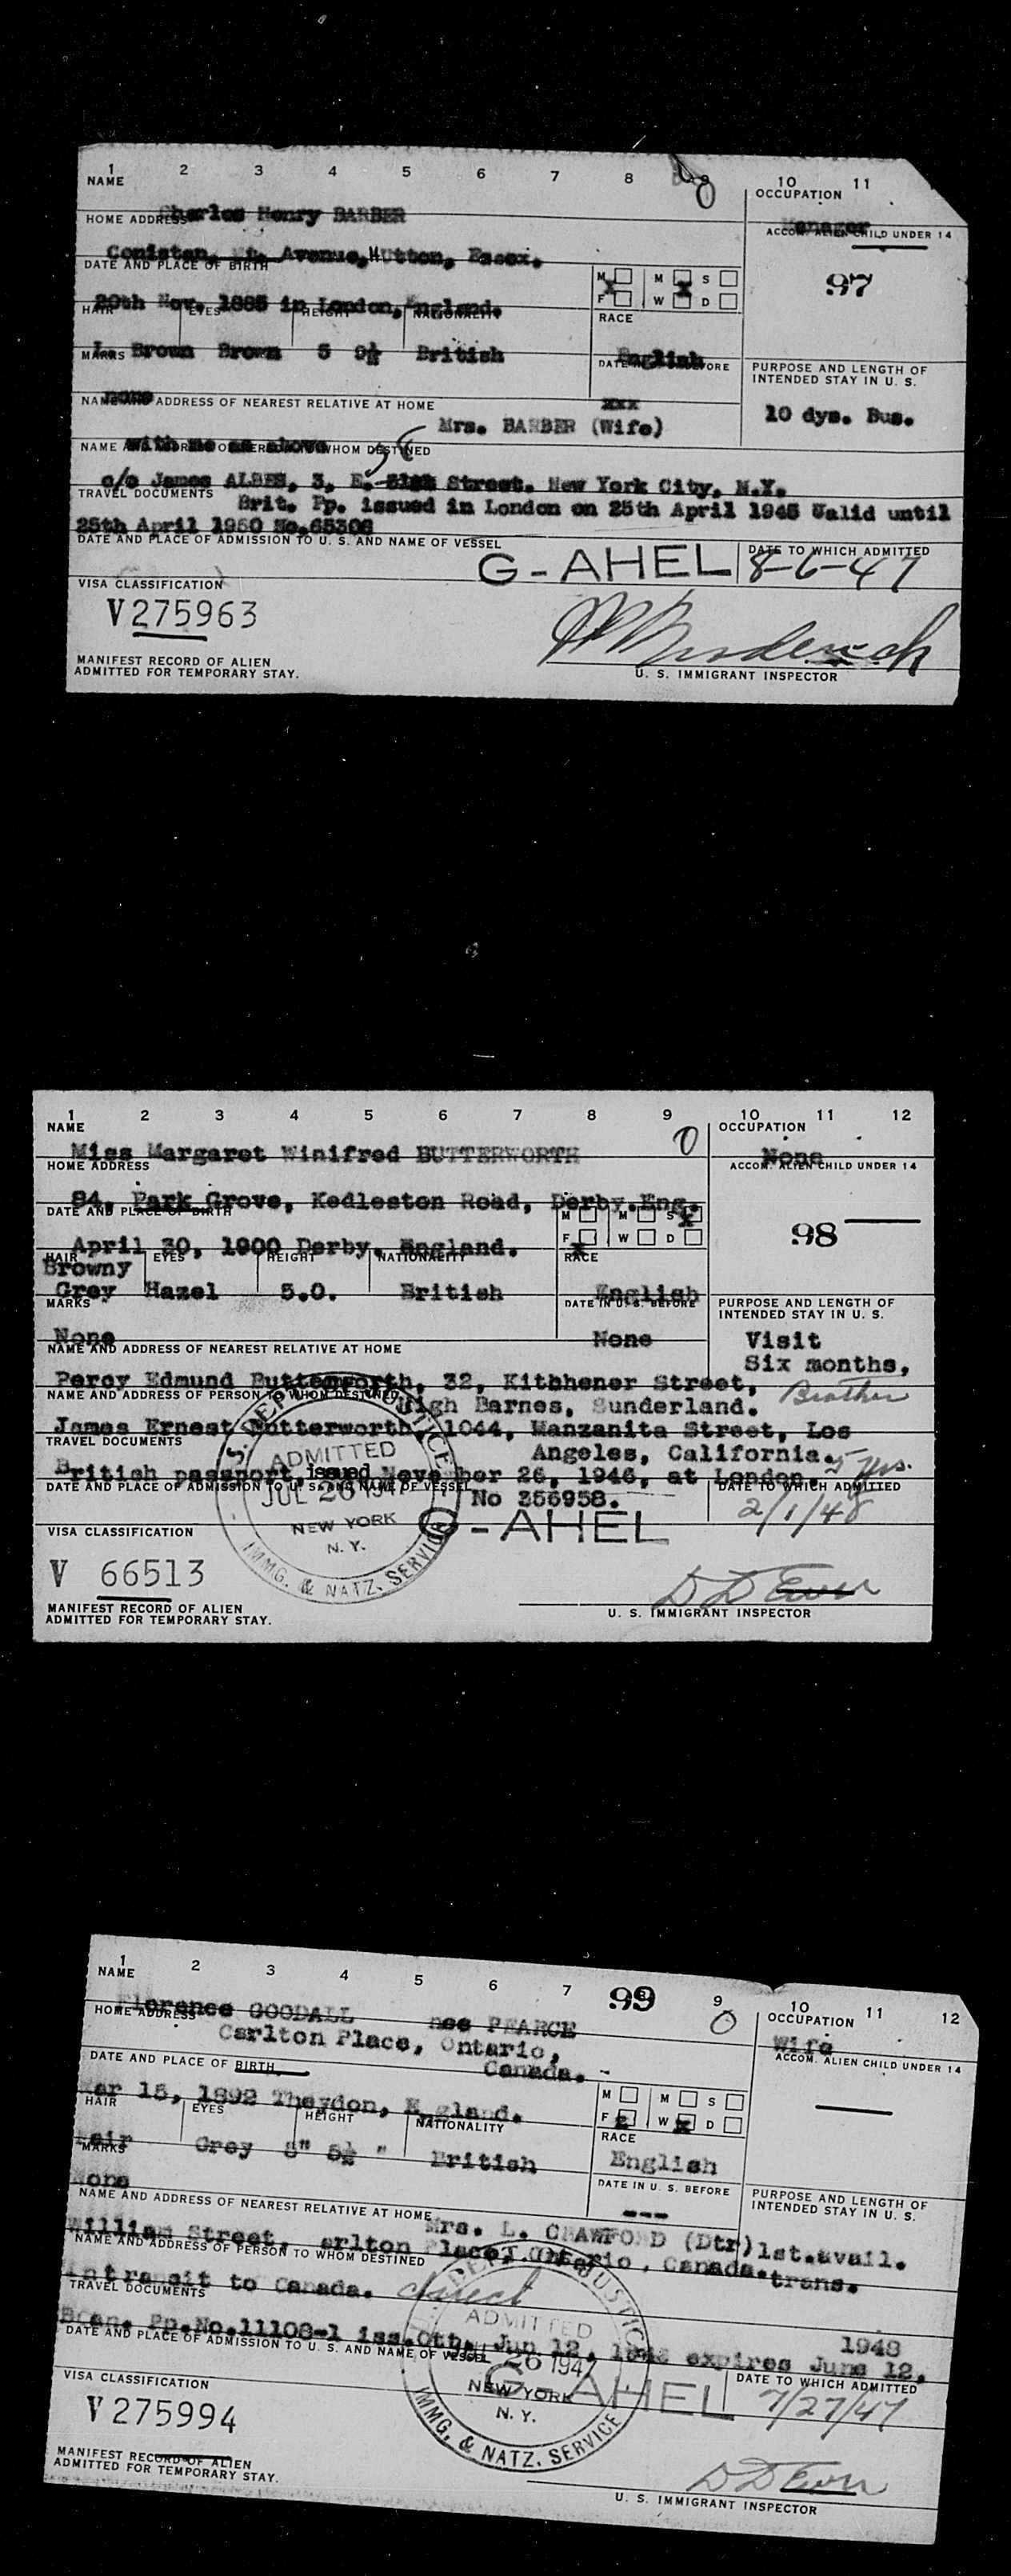 1 2 3 4 5 6 7 8 9 10 11
NAME OCCUPATION
Charles Henry BARBER Manager
HOME ADDRESS ACCOM. ALIEN CHILD UNDER 14
Coniston, Avenue, Hutton, Essex.
DATE AND PLACE OF BIRTH M M S 97
20th Nov. 1885 in London, England. F W D
HAIR EYES HEIGHT NATIONALITY RACE
Brown Brown 5 9½ British English
MARKS DATE IN U. S. BEFORE PURPOSE AND LENGTH OF
INTENDED STAY IN U. S.
none xxx 10 dys. Bus.
NAME AND ADDRESS OF NEAREST RELATIVE AT HOME
Mrs. BARBER (Wife)
with me as above
NAME AND ADDRESS OF PERSON TO WHOM DESTINED
c/o James ALBES, 3, E. Street. New York City, N.Y.
TRAVEL DOCUMENTS
Brit. Pp. issued in London on 25th April 1945 Valid until
25th April 1950 No.65308
DATE AND PLACE OF ADMISSION TO U. S. AND NAME OF VESSEL DATE TO WHICH ADMITTED
G-AHEL 8-6-47
VISA CLASSIFICATION
V275963
MANIFEST RECORD OF ALIEN
ADMITTED FOR TEMPORARY STAY.
U. S. IMMIGRANT INSPECTOR
1 2 3 4 5 6 7 8 9 10 11 12
NAME 0 OCCUPATION
Miss Margaret Winifred BUTTERWORTH None
HOME ADDRESS ACCOM. ALIEN CHILD UNDER 14
84, Park Grove, Kedleston Road, Derby.Eng.
DATE AND PLACE OF BIRTH M M S 98
April 30, 1900 Derby. England. F W D
HAIR EYES HEIGHT NATIONALITY RACE
Browny
Grey Hazel 5.0. British English
MARKS DATE IN U. S. BEFORE PURPOSE AND LENGTH OF
INTENDED STAY IN U. S.
None None Visit
Six months,
NAME AND ADDRESS OF NEAREST RELATIVE AT HOME
Percy Edmund Butterworth, 32, Kitbhener Street,
High Barnes, Sunderland. Brother
NAME AND ADDRESS OF PERSON TO WHOM DESTINED
James Ernest Butterworth, 1044, Manzanita Street, Los
Angeles, California.
TRAVEL DOCUMENTS
British passport, issued November 26, 1946, at London.
No 256958.
DATE AND PLACE OF ADMISSION TO U. S. AND NAME OF VESSEL DATE TO WHICH ADMITTED
U. S. DEPT. OF JUSTICE
ADMITTED
JUL 26 1947
NEW YORK
N. Y.
IMMG. & NATZ. SERVICE
G-AHEL 2/1/48
VISA CLASSIFICATION
V 66513
MANIFEST RECORD OF ALIEN
ADMITTED FOR TEMPORARY STAY.
U. S. IMMIGRANT INSPECTOR
1 2 3 4 5 6 7 99 9 10 11 12
NAME 0 OCCUPATION
Florence GOODALL nee PEARCE Wife
HOME ADDRESS ACCOM. ALIEN CHILD UNDER 14
Carlton Place, Ontario,
Canada.
DATE AND PLACE OF BIRTH M M S
Mar 15, 1892 Theydon, E gland. F W D
HAIR EYES HEIGHT NATIONALITY RACE
Fair Grey 5" 5½ " British English
MARKS DATE IN U. S. BEFORE PURPOSE AND LENGTH OF
INTENDED STAY IN U. S.
None ---
NAME AND ADDRESS OF NEAREST RELATIVE AT HOME
Mrs. L. CRAWFORD (Dtr) 1st.avail.
William Street, arlton Place, Ontario, Canada. trans.
NAME AND ADDRESS OF PERSON TO WHOM DESTINED
intransit to Canada. direct
TRAVEL DOCUMENTS
Pp.No.11108-1 iss. Jun 12, expires June 12, 1948
DATE AND PLACE OF ADMISSION TO U. S. AND NAME OF VESSEL DATE TO WHICH ADMITTED
DEPT. OF JUSTICE
ADMITTED
JUL 26 1947
NEW YORK
N. Y.
IMMG. & NATZ. SERVICE
G-AHEL 7/27/47
VISA CLASSIFICATION
V275994
MANIFEST RECORD OF ALIEN
ADMITTED FOR TEMPORARY STAY.
U. S. IMMIGRANT INSPECTOR